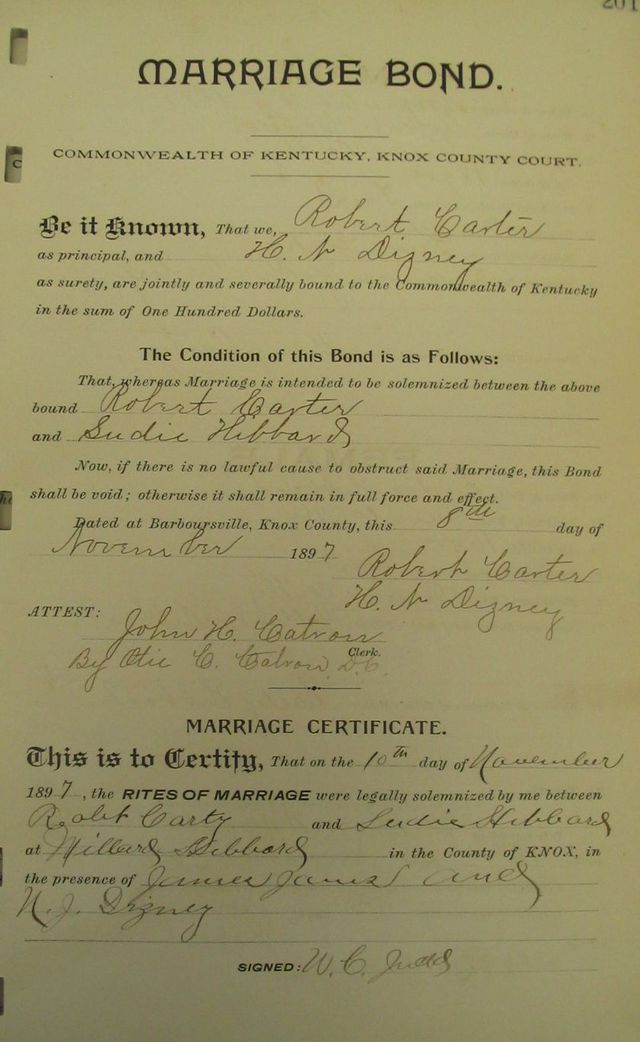 201
MARRIAGE BOND.
COMMONWEALTH OF KENTUCKY, KNOX COUNTY COURT.
Be it Known, That we, Robert Carter
as principal, and H. N Dizney
as surety, are jointly and severally bound to the Commonwealth of Kentucky
in the sum of One Hundred Dollars.
The Condition of this Bond is as Follows:
That, whereas Marriage is intended to be solemnized between the above
bound Robert Carter
and Sudie Hibbard
Now, if there is no lawful cause to obstruct said Marriage, this Bond
shall be void; otherwise it shall remain in full force and effect.
Dated at Barboursville, Knox County, this 8th day of
November 1897
Robert Carter
H. N Dizney
ATTEST:
John H. Catron
Clerk.
By Otie C. Catron, D.C.
MARRIAGE CERTIFICATE.
This is to Certify, That on the 10th day of November
1897, the RITES OF MARRIAGE were legally solemnized by me between
Robt Carty and Sudie Hibbard
at Hibbard in the County of KNOX, in
the presence of James and
Dizney
SIGNED: W. C. Judd